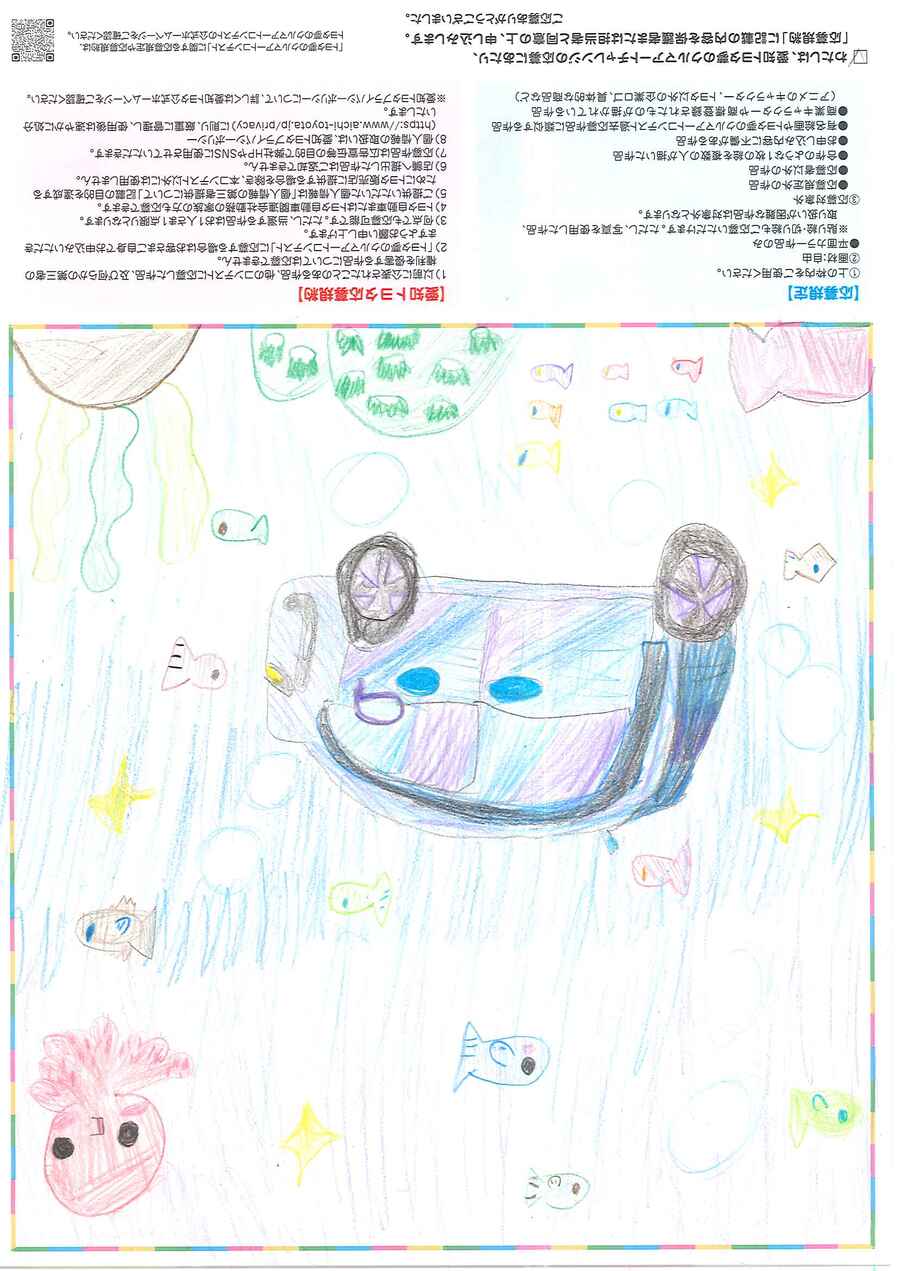 【応募規定】
①上の枠の内をご使用ください。
②画材:自由
●平面カラー作品のみ
※貼り絵・切り絵もご応募いただけます。ただし、写真を使用した作品、
取り扱いが困難な作品は対象外となります。
③応募対象外
●応募規定外の作品
●応募者以外の作品
●合作のような1枚の絵を複数の人が描いた作品
●お申し込み内容に不備がある作品
●有名絵画やトヨタ夢のクルマアートコンテスト過去応募作品に類似する作品
●商業キャラクターや商標登録されたものが描かれている作品
(アニメのキャラクター、トヨタ以外の企業ロゴ、具体的な商品など)
【愛知トヨタ応募規約】
1)以前に公表されたことのある作品、他のコンテストに応募した作品、及び何らかの第三者の
権利を侵害する作品については応募できません。
2)「トヨタ夢のクルマアートコンテスト」に応募する場合はお客さまご自身でお申込みいただき
ますようお願い申し上げます。
3)何点でも応募可能です。ただし、当選する作品はお1人さま1点限りとなります。
4)トヨタ自動車またはトヨタ自動車関連会社勤務の家族の方も応募できます。
5)ご提供いただいた個人情報は「個人情報の第三者提供について」記載の目的を達成する
ためにトヨタ販売店に提供する場合を除き、本コンテスト以外には使用しません。
6)店舗へ提出した作品はご返却できません。
7)応募作品は広告宣伝等の目的で弊社HPやSNSに使用させていただきます。
8)個人情報の取扱いは、愛知トヨタプライバシーポリシー
(https://www.aichi-toyota.jp/privacy)に則り、厳重に管理し、使用後は速やかに処分
いたします。
※愛知トヨタプライバシーポリシーについて、詳しくは愛知トヨタ公式ホームページをご確認ください。
わたしは、愛知トヨタ夢のクルマアートチャレンジの応募にあたり、
「応募規約」に記載の内容を保護者または担当者と同意の上、申し込みします。
ご応募ありがとうございました。
「トヨタ夢のクルマアートコンテスト」に関する応募規定や応募規約は、
トヨタ夢のクルマアートコンテストの公式ホームページをご確認ください。